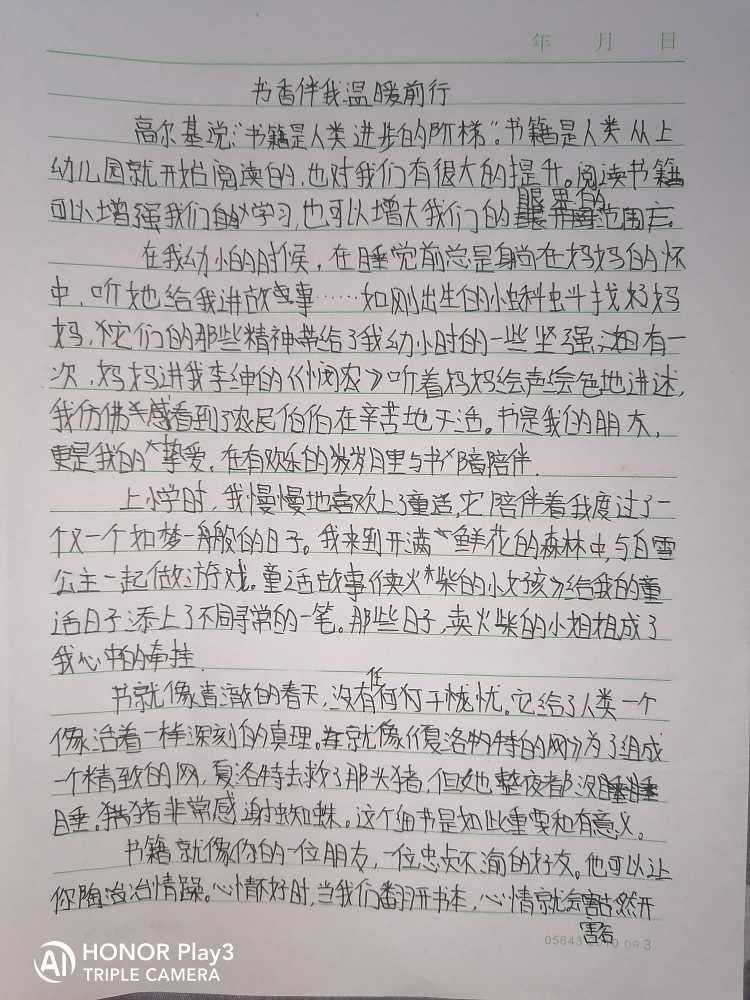 年 月 日
书香伴我温暖前行
高尔基说:“书籍是人类进步的阶梯”。书籍是人类从上
幼儿园就开始阅读的,也对我们有很大的提升。阅读书籍
眼界的
可以增强我们的学习,也可以增大我们的范围广。
在我幼小的时候,在睡觉前总是躺在妈妈的怀
中,听她给我讲故事……如刚出生的小蝌蚪找妈
妈,它们的那些精神带给了我幼小时的一些坚强;有一
次,妈妈讲我李绅的《悯农》听着妈妈绘声绘色地讲述,
我仿佛看到了农民伯伯在辛苦地干活。书是我的朋友,
更是我的挚爱,在有欢乐的岁月里与书陪伴.
上小学时,我慢慢地喜欢上了童话,它陪伴着我度过了一
个又一个如梦一般的日子。我来到开满鲜花的森林中,与白雪
公主一起做游戏。童话故事《卖火柴的小女孩》给我的童
话日子添上了不同寻常的一笔。那些日子,卖火柴的小姐姐成了
我心中的牵挂.
任
书就像清澈的春天,没有何何干忧。它给了人类一个
像活着一样深刻的真理。就像《夏洛特的网》为了组成
一个精致的网,夏洛特去救了那头猪,但她整夜都没
睡。猪非常感谢蜘蛛。这个细书是如此重要和有意义。
书籍就像你的一位朋友,一位忠贞不渝的好友。他可以让
你陶冶情躁。心情不好时,当我们翻开书本,心情就会然开
05643
HONOR Play3
TRIPLE CAMERA